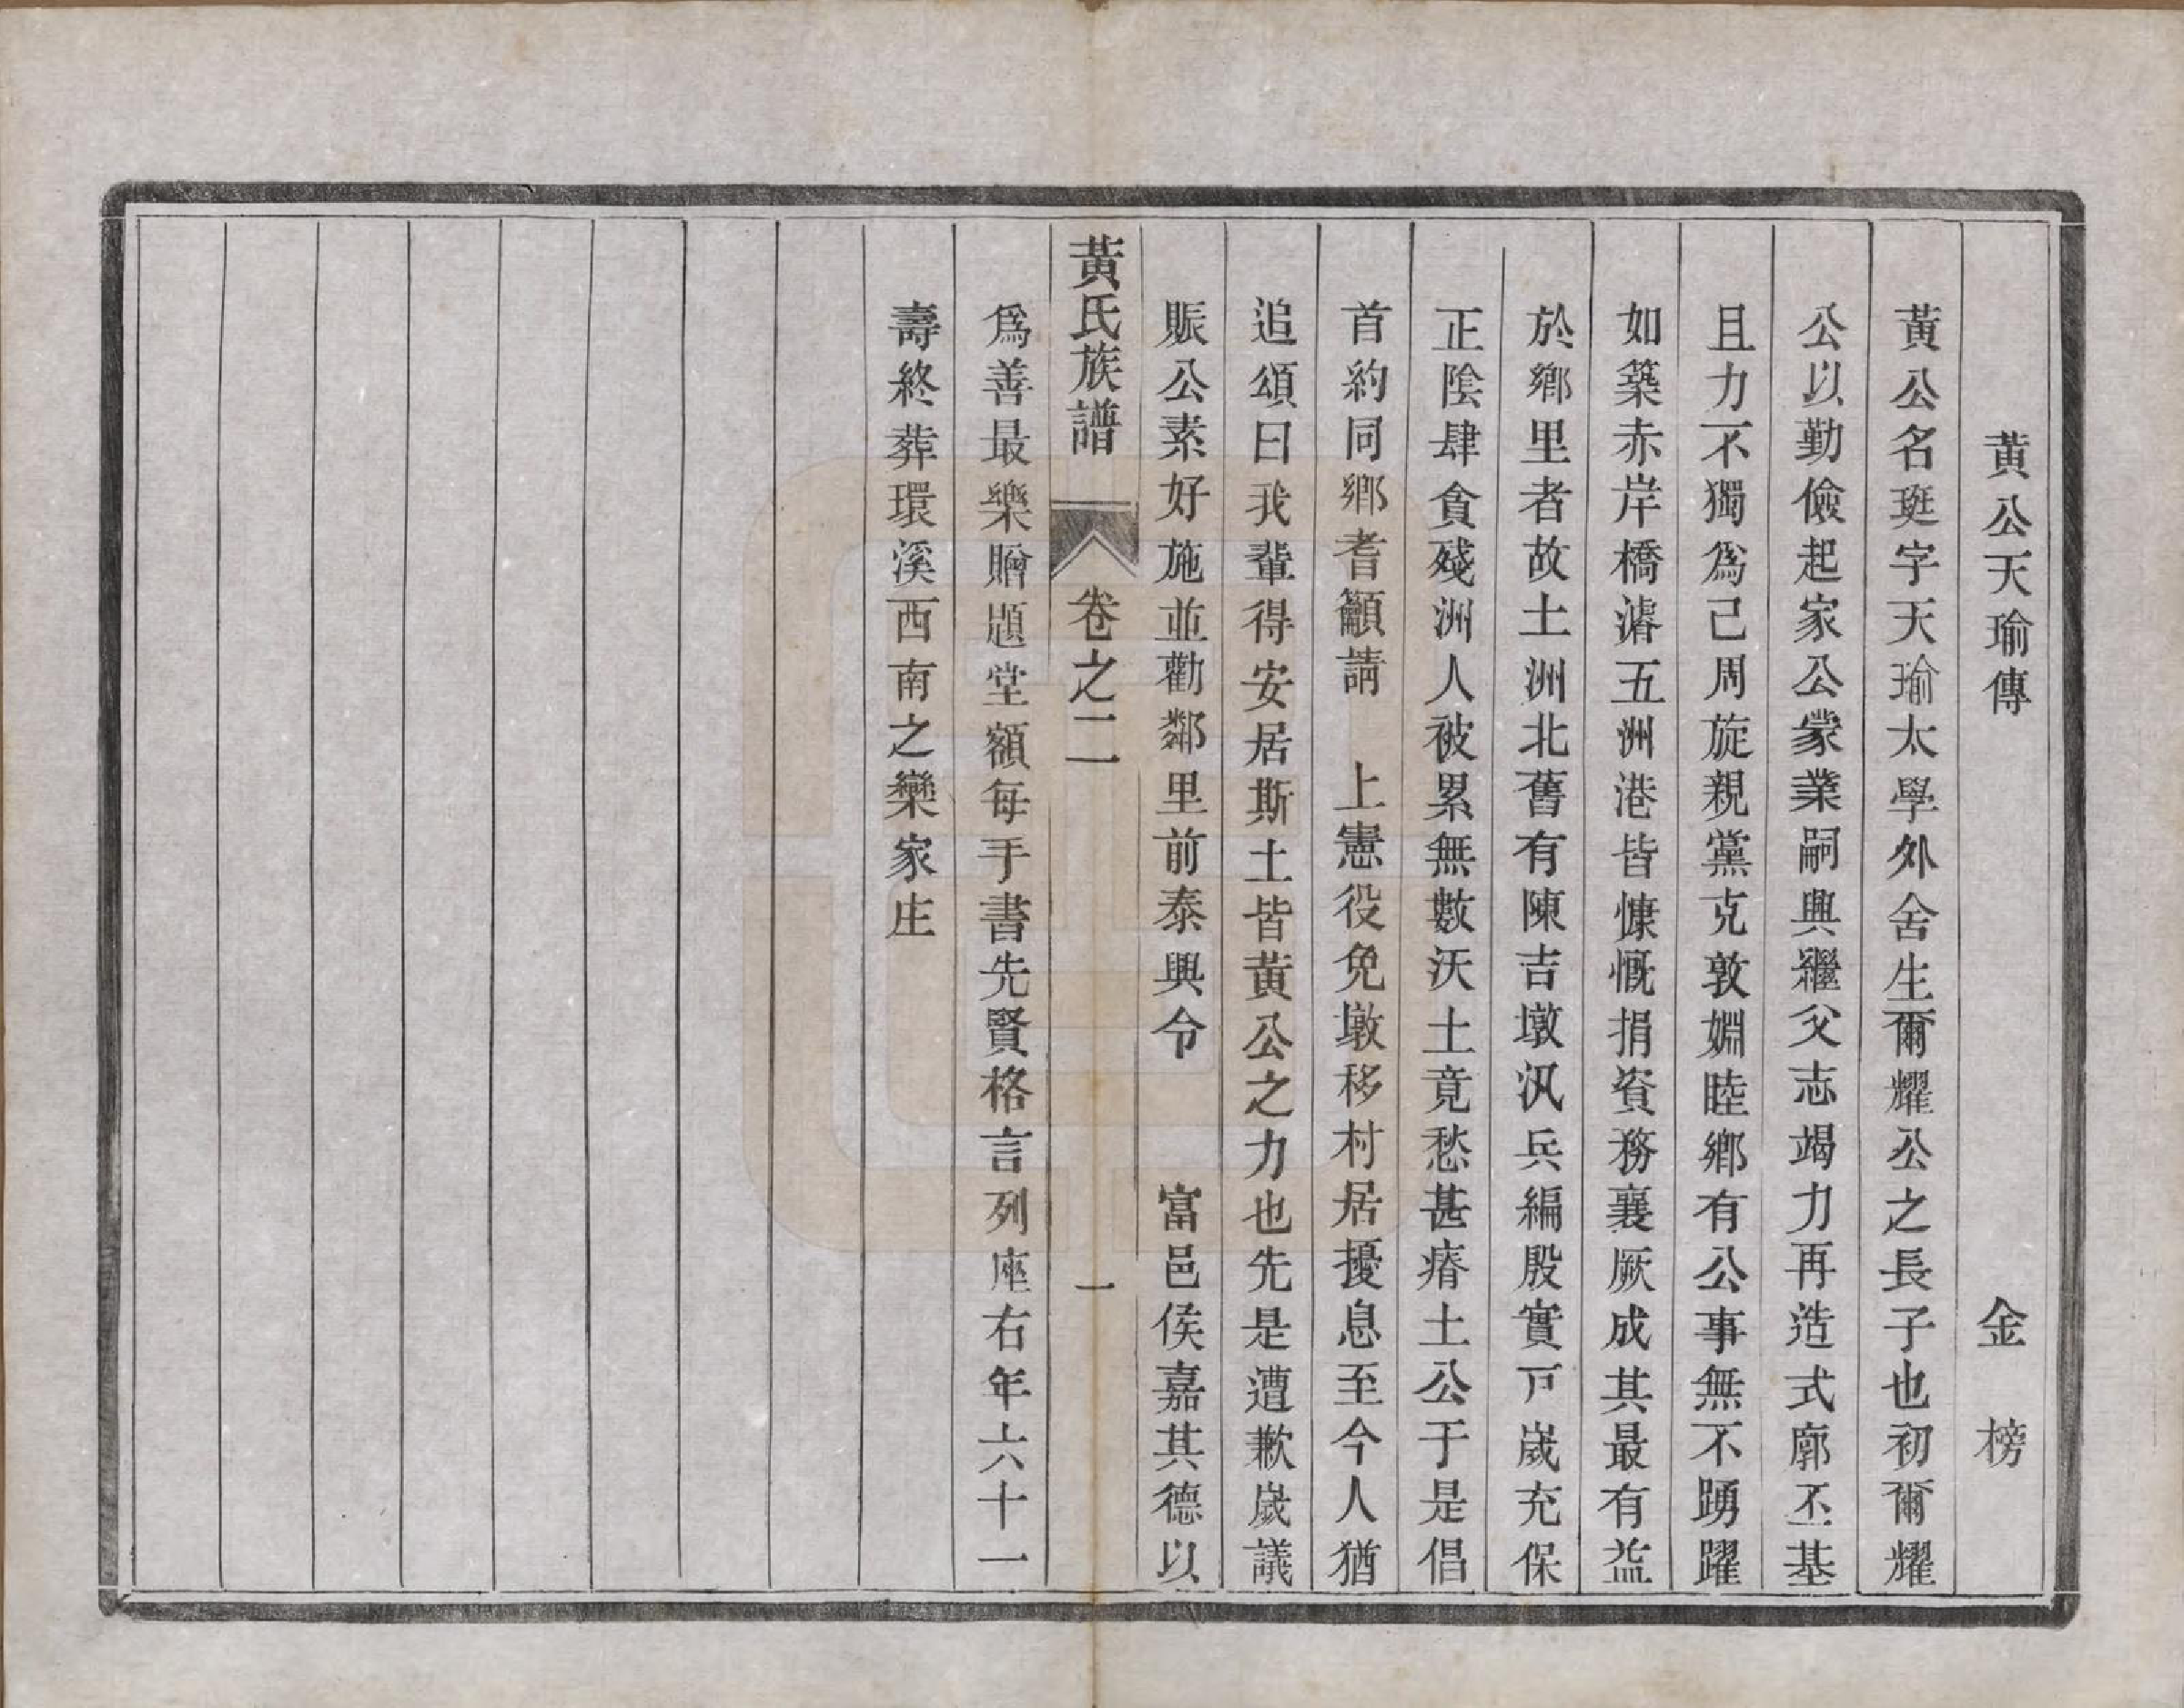 黃公天瑜傳　金榜
黃公名珽字天瑜太學外舍生爾耀公之長子也初爾耀
公以勤儉起家公蒙業嗣興繼父志竭力再造式廓丕基
且力不獨爲己周旋親黨克敦婣睦鄉有公事無不踴躍
如築赤岸橋濬五洲港皆慷慨捐資務襄厥成其最有益
於鄉里者故土洲北舊有陳吉墩汛兵編殷實戸歲充保
正陰肆貪殘洲人被累無數沃土竟愁甚瘠土公于是倡
首約同鄉耆籲請　上憲役免墩移村居擾息至今人猶
追頌曰我輩得安居斯土皆黃公之力也先是遭歉歲議
賑公素好施並勸鄰里前泰興令　富邑侯嘉其德以
黃氏族譜　卷之二　一
爲善最樂贈題堂額每手書先賢格言列座右年六十一
壽終葬環溪西南之欒家庄